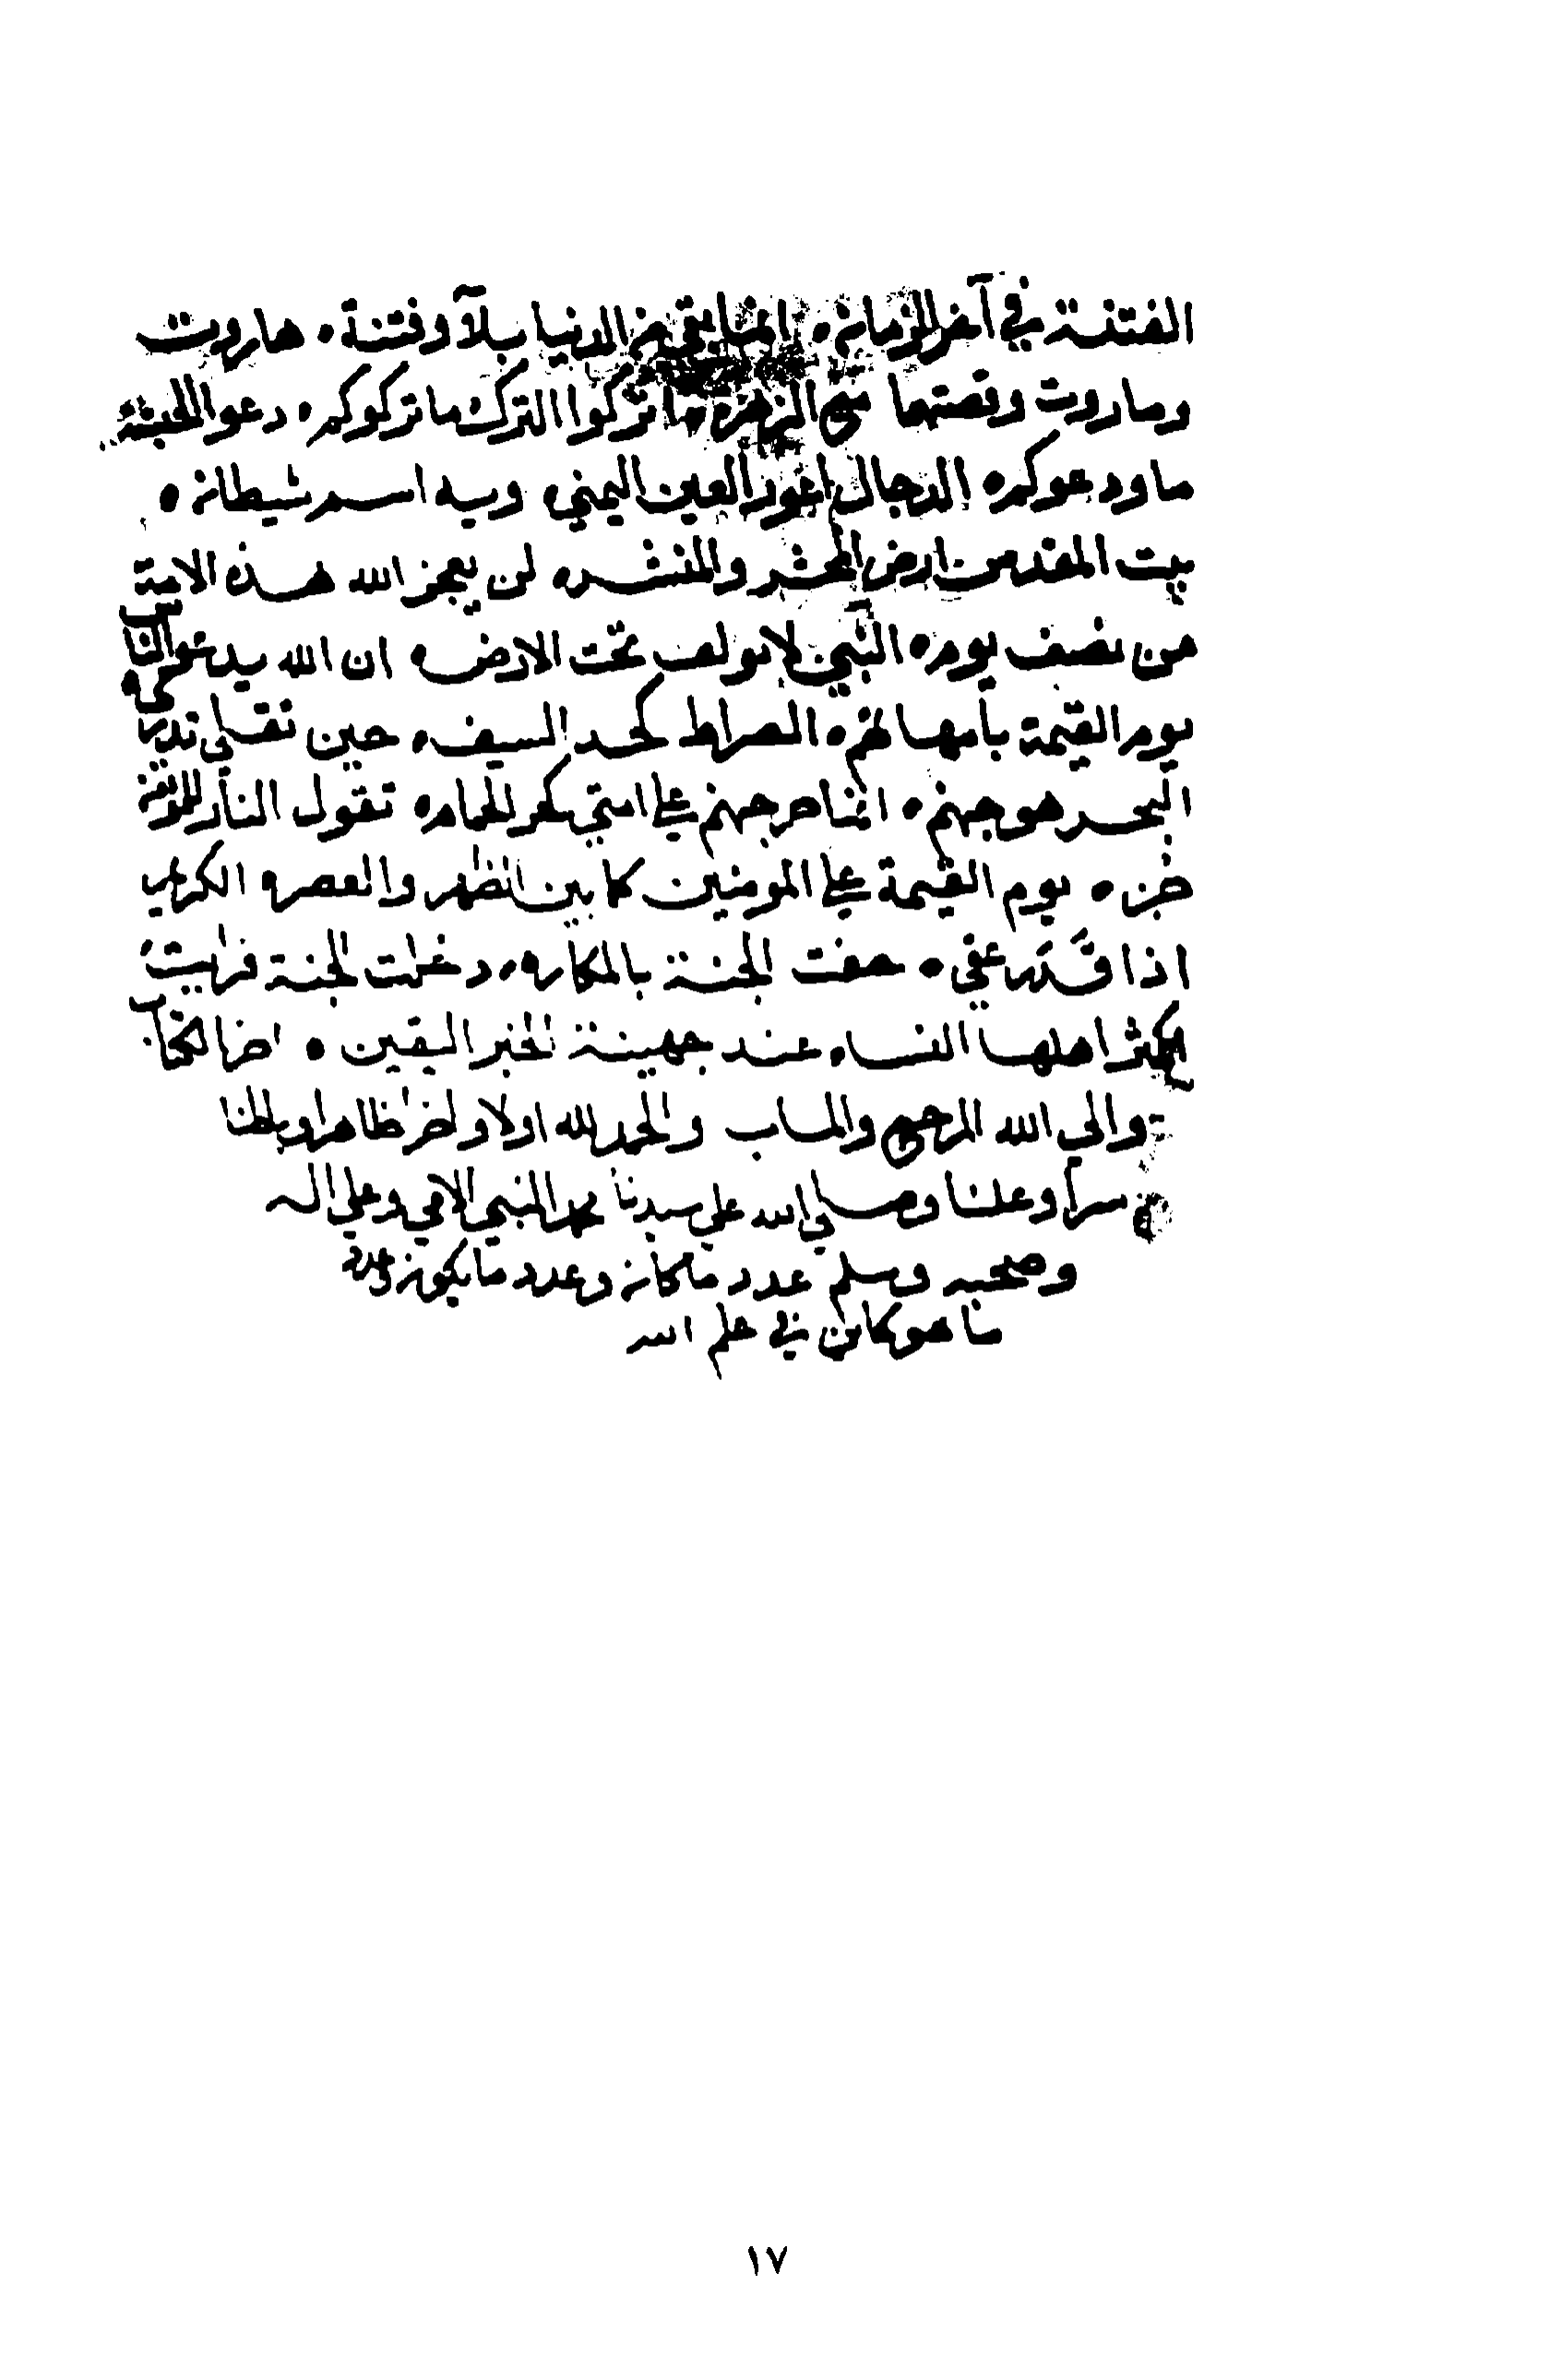 الفتنة في آخر الزمان ه انما بقي من الدنيا بلآ وفتنة ه هاروت
وماروت وقصتهما مع الزهرة ه ما تركوا الترك ما تركوكم ه دعوا الحبشة
ما ودعوكم ه الدجال اعور العين اليمني ه وسيد اسم شيطان ه
بيت المقدس ارض المحشر والمنشر ه لن يعجز الله هذه الامة
من نصف يوم ه النبي لا يولف تحت الارض ه ان الله يدعو الناس
يوم القيمة بأمهاتهم ه الصراط كحد السيف ه حين تقلى
البحر هو جهنم ه انما حر جهنم على امتي كحر الحمام ه تقول النار للمؤمن
جز ه يوم القيمة على المومنين كما بين الظهر والعصر ه الكريم
اذا قدر عفى ه حفت الجنة بالمكاره ه دخلت الجنة فرايت
اكثر اهلها النساء ه عند جهينة الخبر اليقين ه اخر الكتاب
والى الله المرجع والماب والحمد لله اولا واخرا ظاهرا وباطنا
سرآ وعلنا وصلى الله على سيدنا محمد النبي الامي وعلى اله
وصحبه وسلم عدد ما كان وعدد ما يكون وعدد
ما هو كائن في علم الله
١٧